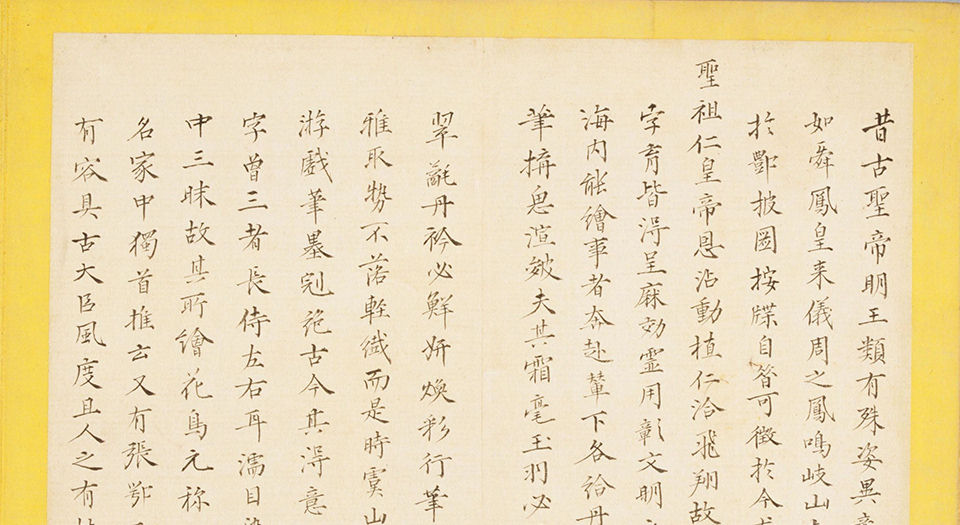 昔古聖帝明王類有殊姿異
如舜鳳皇来儀周之鳳鳴岐山
於酆披圖按牒自昝可徵於今
聖祖仁皇帝恩沾動植仁洽飛翔故
字育皆淂呈庥効靈用彰文明
海内能繪事者夲赴輦下各給丹
筆摛思渲皴夫其霜毫玉羽必
翠氄丹衿必鮮妍煥彩行筆
雅取勢不落輕纎而是時虞山
游戲筆墨剋範古今其淂意
字曾三者長侍左右耳濡目
中三昧故其所繪花鳥元称
名家中獨首推云又有張鄂
有容具古大臣風度且人之有